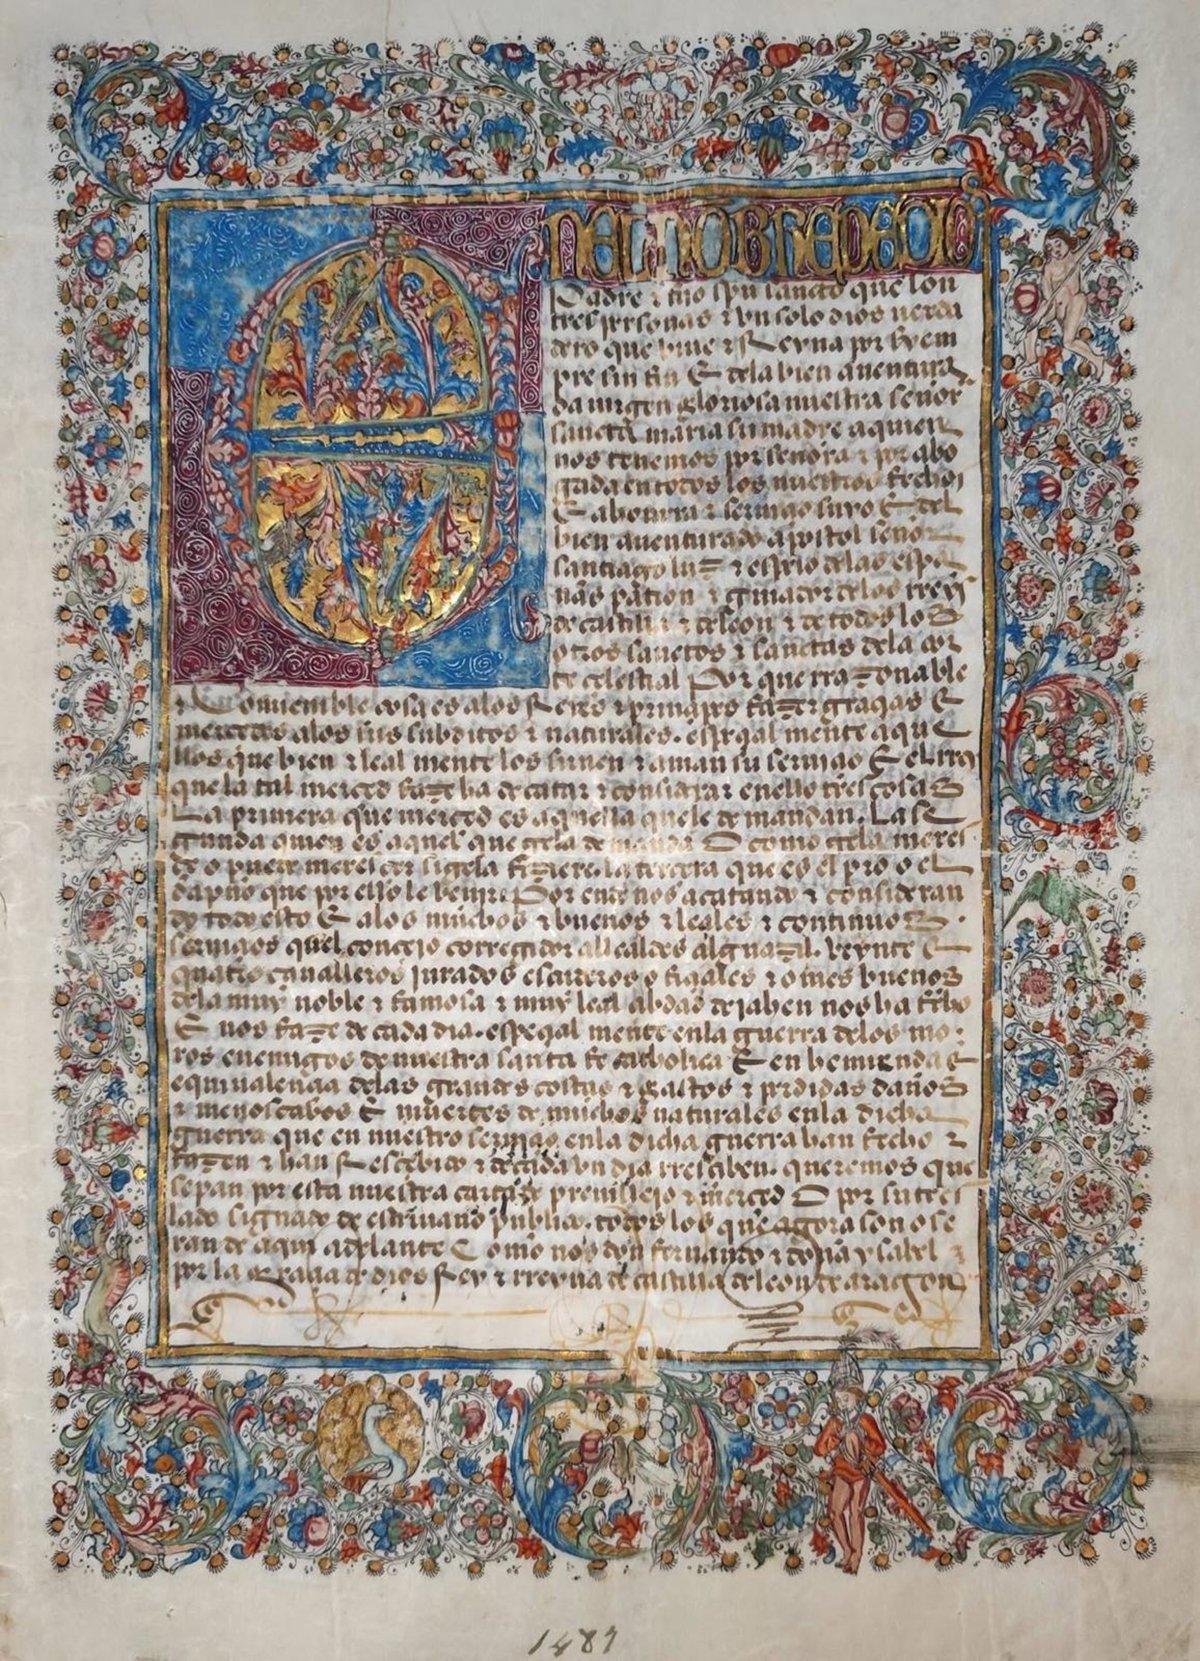 EN EL NONBRE DE DIOS
padre & fijo & spu sancto que son
tres personas & vn solo dios verda
dero que biue & Reyna por syem
pre sin fin E dela bien auentura
da virgen gloriosa nuestra señora
sancta maria su madre a quien
nos tenemos por señora & por abo
gada en todos los nuestros fechos
E a honrra & seruiçio suyo E del
bien auenturado apostol señor
santiago luz & espejo delas espa
ñas patron & guiador delos rreyes
de castilla & de leon & de todos los
otros sanctos & sanctas dela cor
te celestial Por que rrazonable
& Conuenible cosa es alos Reyes & prinçipes fazer graçias E
merçedes alos sus subditos & naturales. espeçial mente aque
llos que bien & leal mente los siruen & aman su seruiçio E el rrey
que la tal merced faze ha de catar & considerar enello tres cosas
La primera que merced es aquella quele demandan. La se
gunda quien es aquel que gela demanda O como gela meres
çe o puede meresçer si gela fiziere. la terçera que es el pro o el
dapño que por ello le benir. Por ende nos acatando & consideran
do todo esto E alos muchos & buenos & leales & continuos
seruiçios quel conçejo corregidor allcaldes alguazil. veynte E
quatro caualleros jurados escuderos ofiçiales & omes buenos
dela muy noble & famosa & muy leal çibdad de jahen nos ha fecho
E nos faze de cada dia. espeçial mente enla guerra delos mo
ros enemigos de nuestra santa fe catholica E en hemienda E
equiualençia delas grandes costas & gastos & perdidas daños
& menoscabos E muertes de muchos naturales enla dicha
guerra que en nuestro seruiçio enla dicha guerra han fecho &
fazen & han Resçebido & de cada vn dia rresçiben. queremos que
sepan por esta nuestra carta de preuillejo & merced O por su tres
lado signado de escriuano publico. todos los que agora son o se
ran de aqui adelante Como nos don fernando & doña ysabel &
por la graçia de dios Rey & rreyna de castilla de leon de aragon
1487